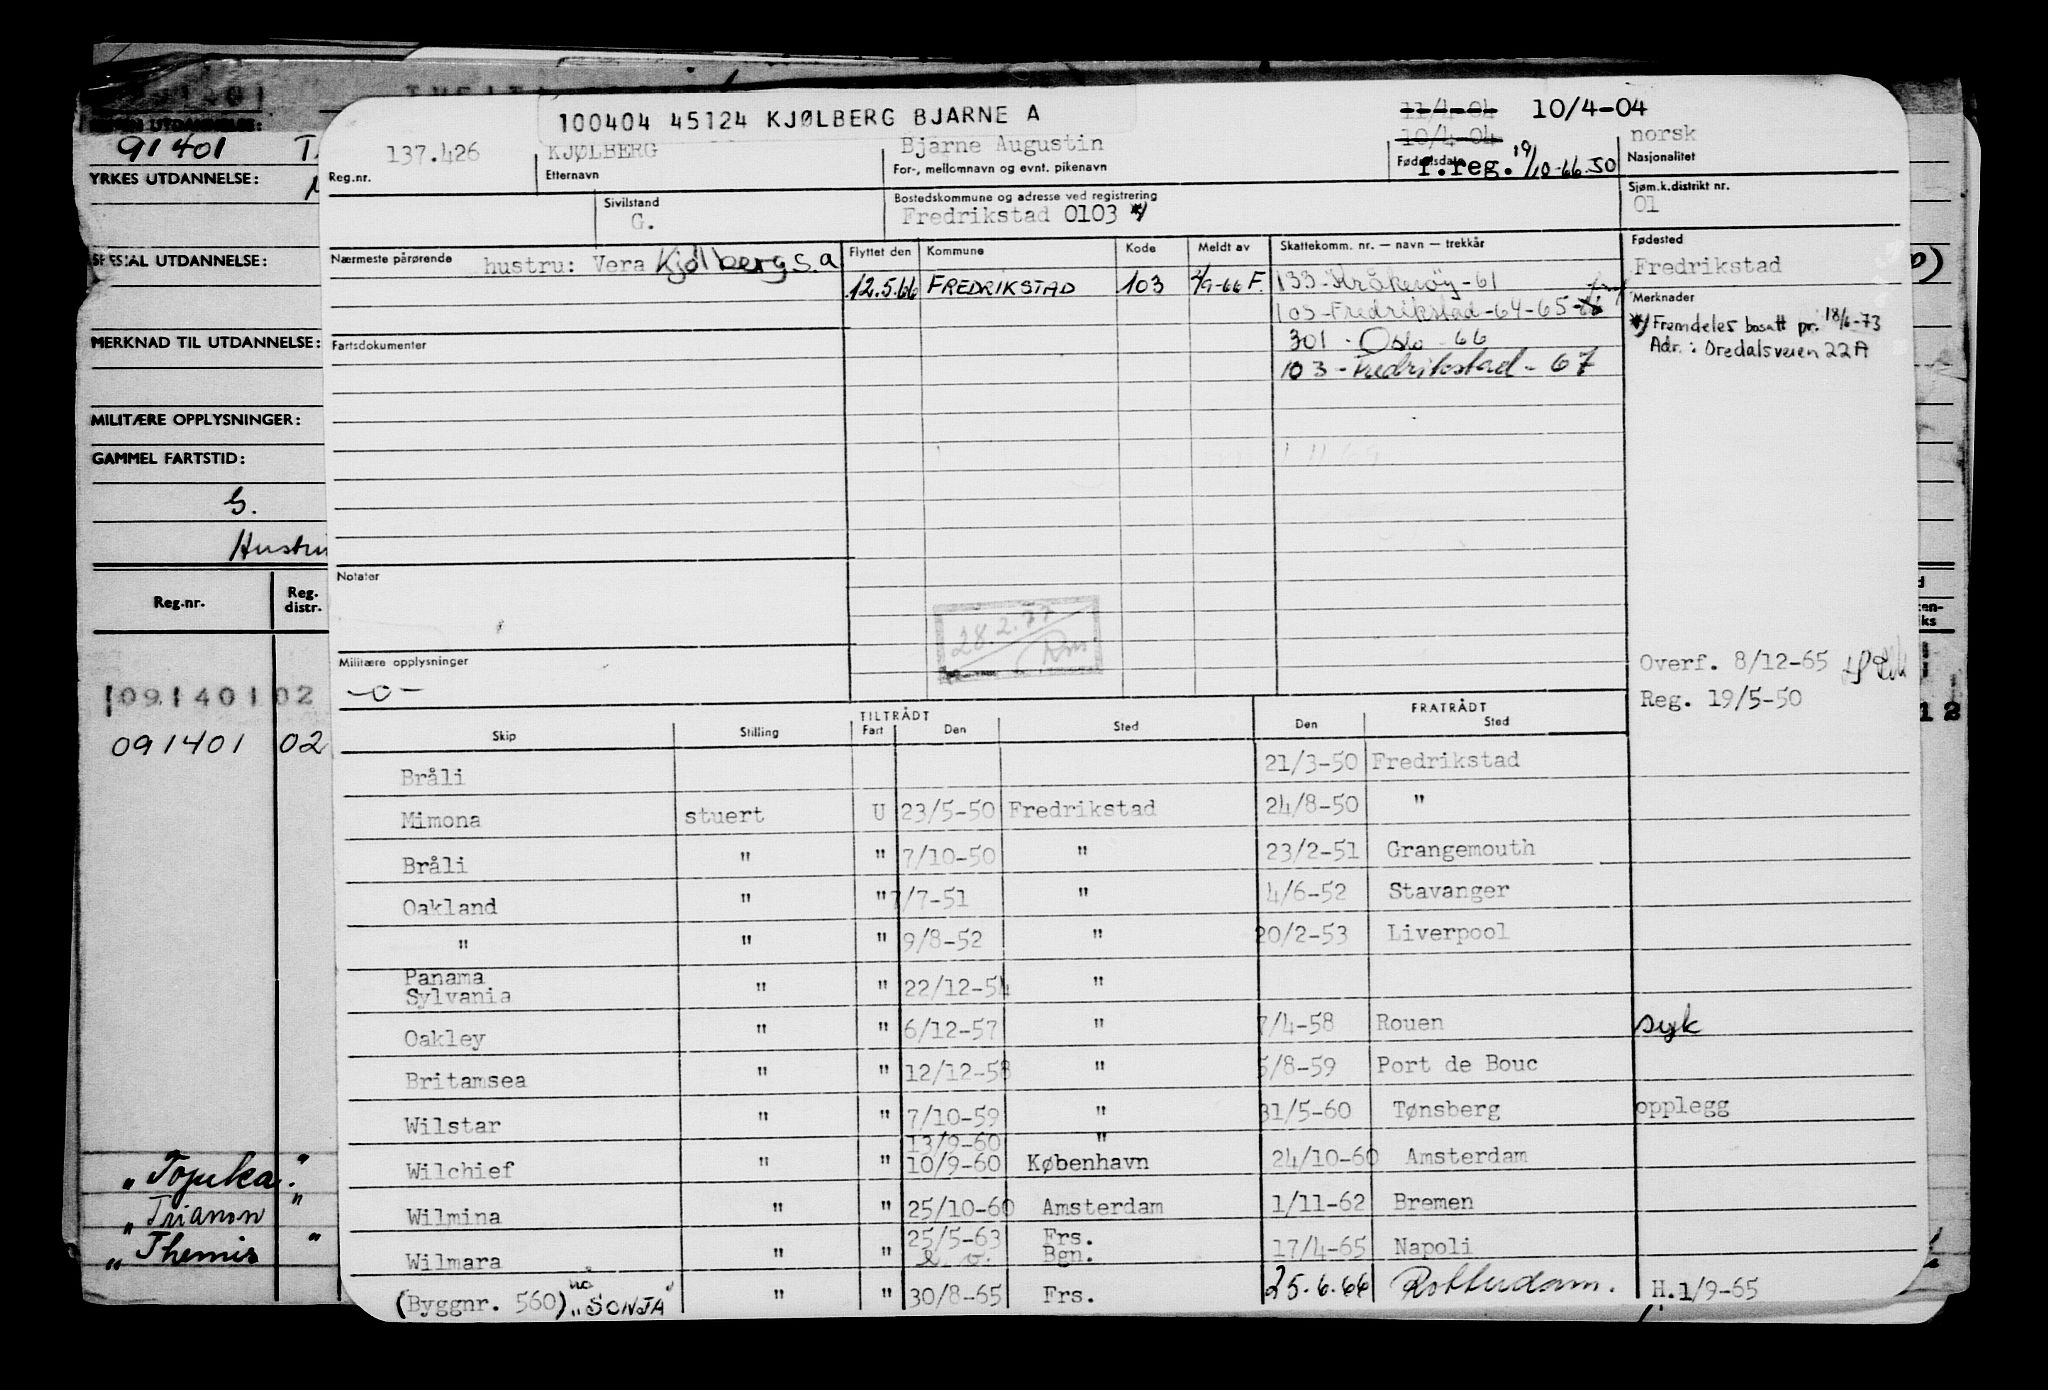 100404 45124 KJØLBERG BJARNE A
11/4-04 10/4-04
10/4-04
137.426 KJØLBERG Bjarne Augustin norsk
Reg.nr. Etternavn For-, mellomnavn og evnt. pikenavn Fødselsdato Nasjonalitet
r.reg. 19/10-66.SO
Sivilstand Bostedskommune og adresse ved registrering Sjøm.k.distrikt nr.
G. Fredrikstad 0103 *) 01
Nærmeste pårørende hustru: Vera Kjølberg s.a
Flyttet den Kommune Kode Meldt av Skattekomm. nr. — navn — trekkår Fødested
12.5.66 FREDRIKSTAD 103 2/9-66 F. 133-Kråkerøy-61 Fredrikstad
103-Fredrikstad-64-65-66
Merknader
301 - Oslo - 66
103 - Fredrikstad - 67
*) Fremdeles bosatt pr. 18/6-73
Adr.: Oredalsveien 22A
Fartsdokumenter
Notater
28.2.77
Militære opplysninger
-o-
Overf. 8/12-65
Reg. 19/5-50
TILTRÅDT FRATRÅDT
Skip Stilling Fart Den Sted Den Sted
Bråli 21/3-50 Fredrikstad
Mimona stuert U 23/5-50 Fredrikstad 24/8-50 "
Bråli " " 7/10-50 " 23/2-51 Grangemouth
Oakland " " 7/7-51 " 4/6-52 Stavanger
" " " 9/8-52 " 20/2-53 Liverpool
Panama
Sylvania " " 22/12-54 "
Oakley " " 6/12-57 " 7/4-58 Rouen syk
Britamsea " " 12/12-58 " 5/8-59 Port de Bouc
Wilstar " " 7/10-59 " 31/5-60 Tønsberg opplegg
13/9-60 "
Wilchief " " 10/9-60 København 24/10-60 Amsterdam
Wilmina " " 25/10-60 Amsterdam 1/11-62 Bremen
25/5-63 Frs.
Wilmara " " & o. Bgn. 17/4-65 Napoli
(Byggnr. 560) nå "SONJA" " " 30/8-65 Frs. 25.6.66 Rotterdam. H.1/9-65
UTDANNELSE:
91401
YRKES UTDANNELSE:
SPESIAL UTDANNELSE:
MERKNAD TIL UTDANNELSE:
MILITÆRE OPPLYSNINGER:
GAMMEL FARTSTID:
G.
Hustru
Reg.nr. Reg. distr.
091401 02
091401 02
"Topeka" "
"Trianon "
"Themis "
12